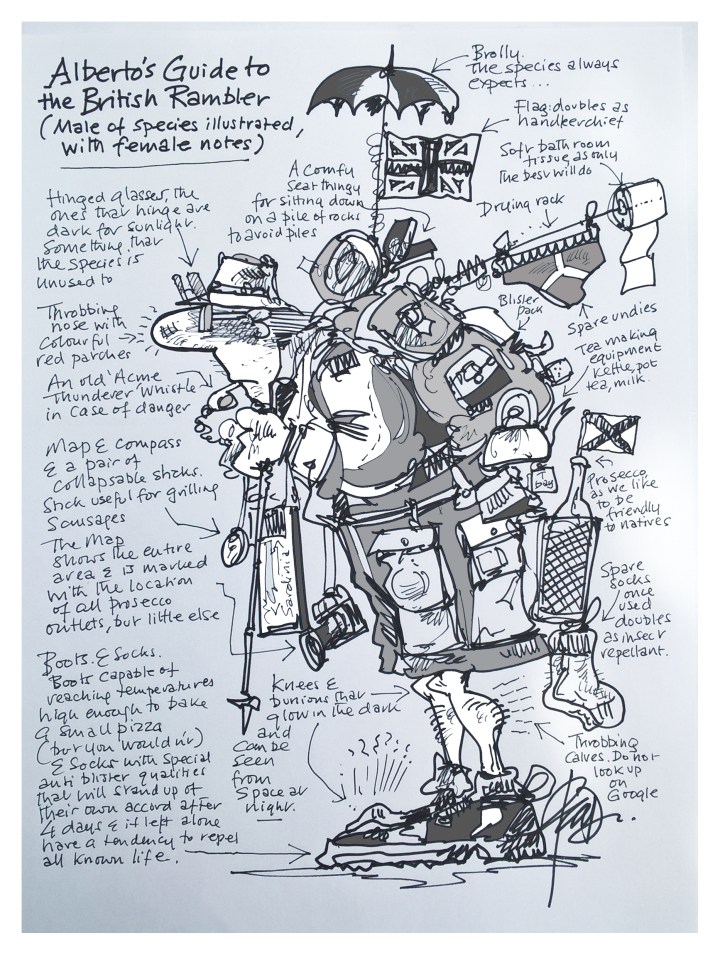 Alberto's Guide to
the British Rambler
(Male of species illustrated,
with female notes)
Brolly.
The species always
expects...
Flag: doubles as
handkerchief
Soft bathroom
tissue as only
the best will do
Drying rack
A comfy
seat thingy
for sitting down
on a pile of rocks
to avoid piles
Hinged glasses, the
ones that hinge are
dark for sunlight.
Something that
the species is
unused to
Throbbing
nose with
colourful
red patches
An old 'Acme
Thunderer' Whistle
in case of danger
Map & compass
& a pair of
collapsable sticks.
Stick useful for grilling
sausages
The Map
shows the entire
area & is marked
with the location
of all prosecco
outlets, but little else
Boots & Socks.
Boots capable of
reaching temperatures
high enough to bake
a small pizza
(but you wouldn't)
& socks with special
anti blister qualities
that will stand up of
their own accord after
4 days & if left alone
have a tendency to repel
all known life.
Blister
pack
Spare undies
Tea making
equipment
Kettle, pot
tea, milk.
Prosecco,
as we like
to be
friendly
to natives
Spare
socks
once
used
doubles
as insect
repellant.
Sardinia
Knees &
bunions that
glow in the dark
and
can be
seen
from
Space at
night.
Throbbing
calves. Do not
look up
on
Google